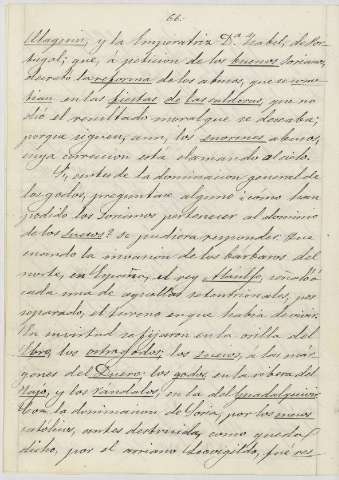 66.
Magenis, y la Imperatriz D.ª Isabel, de Por-
tugal; que, a peticion de los buenos Sorianos,
decreto la reforma de los abusos, que se come-
tian en las fiestas de las calderas, que no
dió el resultado moral que se deseaba;
porque siguen, aun, los enormes abusos,
cuya correccion está clamando al cielo.
Si, antes de la dominacion general de
los godos, preguntase alguno ¿cómo han
podido los Sorianos pertenecer al dominio
de los Suevos? se pudiera responder. Que
cuando la invasion de los bárbaros del
norte, en España, el rey Ataulfo, señaló á
cada una de aquellas setentrionales, por
separado, el terreno en que habia de vivir.
En su virtud se fijaron en la orilla del
Ebro, los ostrogodos; los Suevos, á las már-
genes del Duero; los godos en la ribera del
Tajo, y los Vándalos, en la del Guadalquivir.
Con la dominacion de Soria, por los menos
católicos, antes destruida, como queda
dicho, por el arriano Leovigildo, fué res-